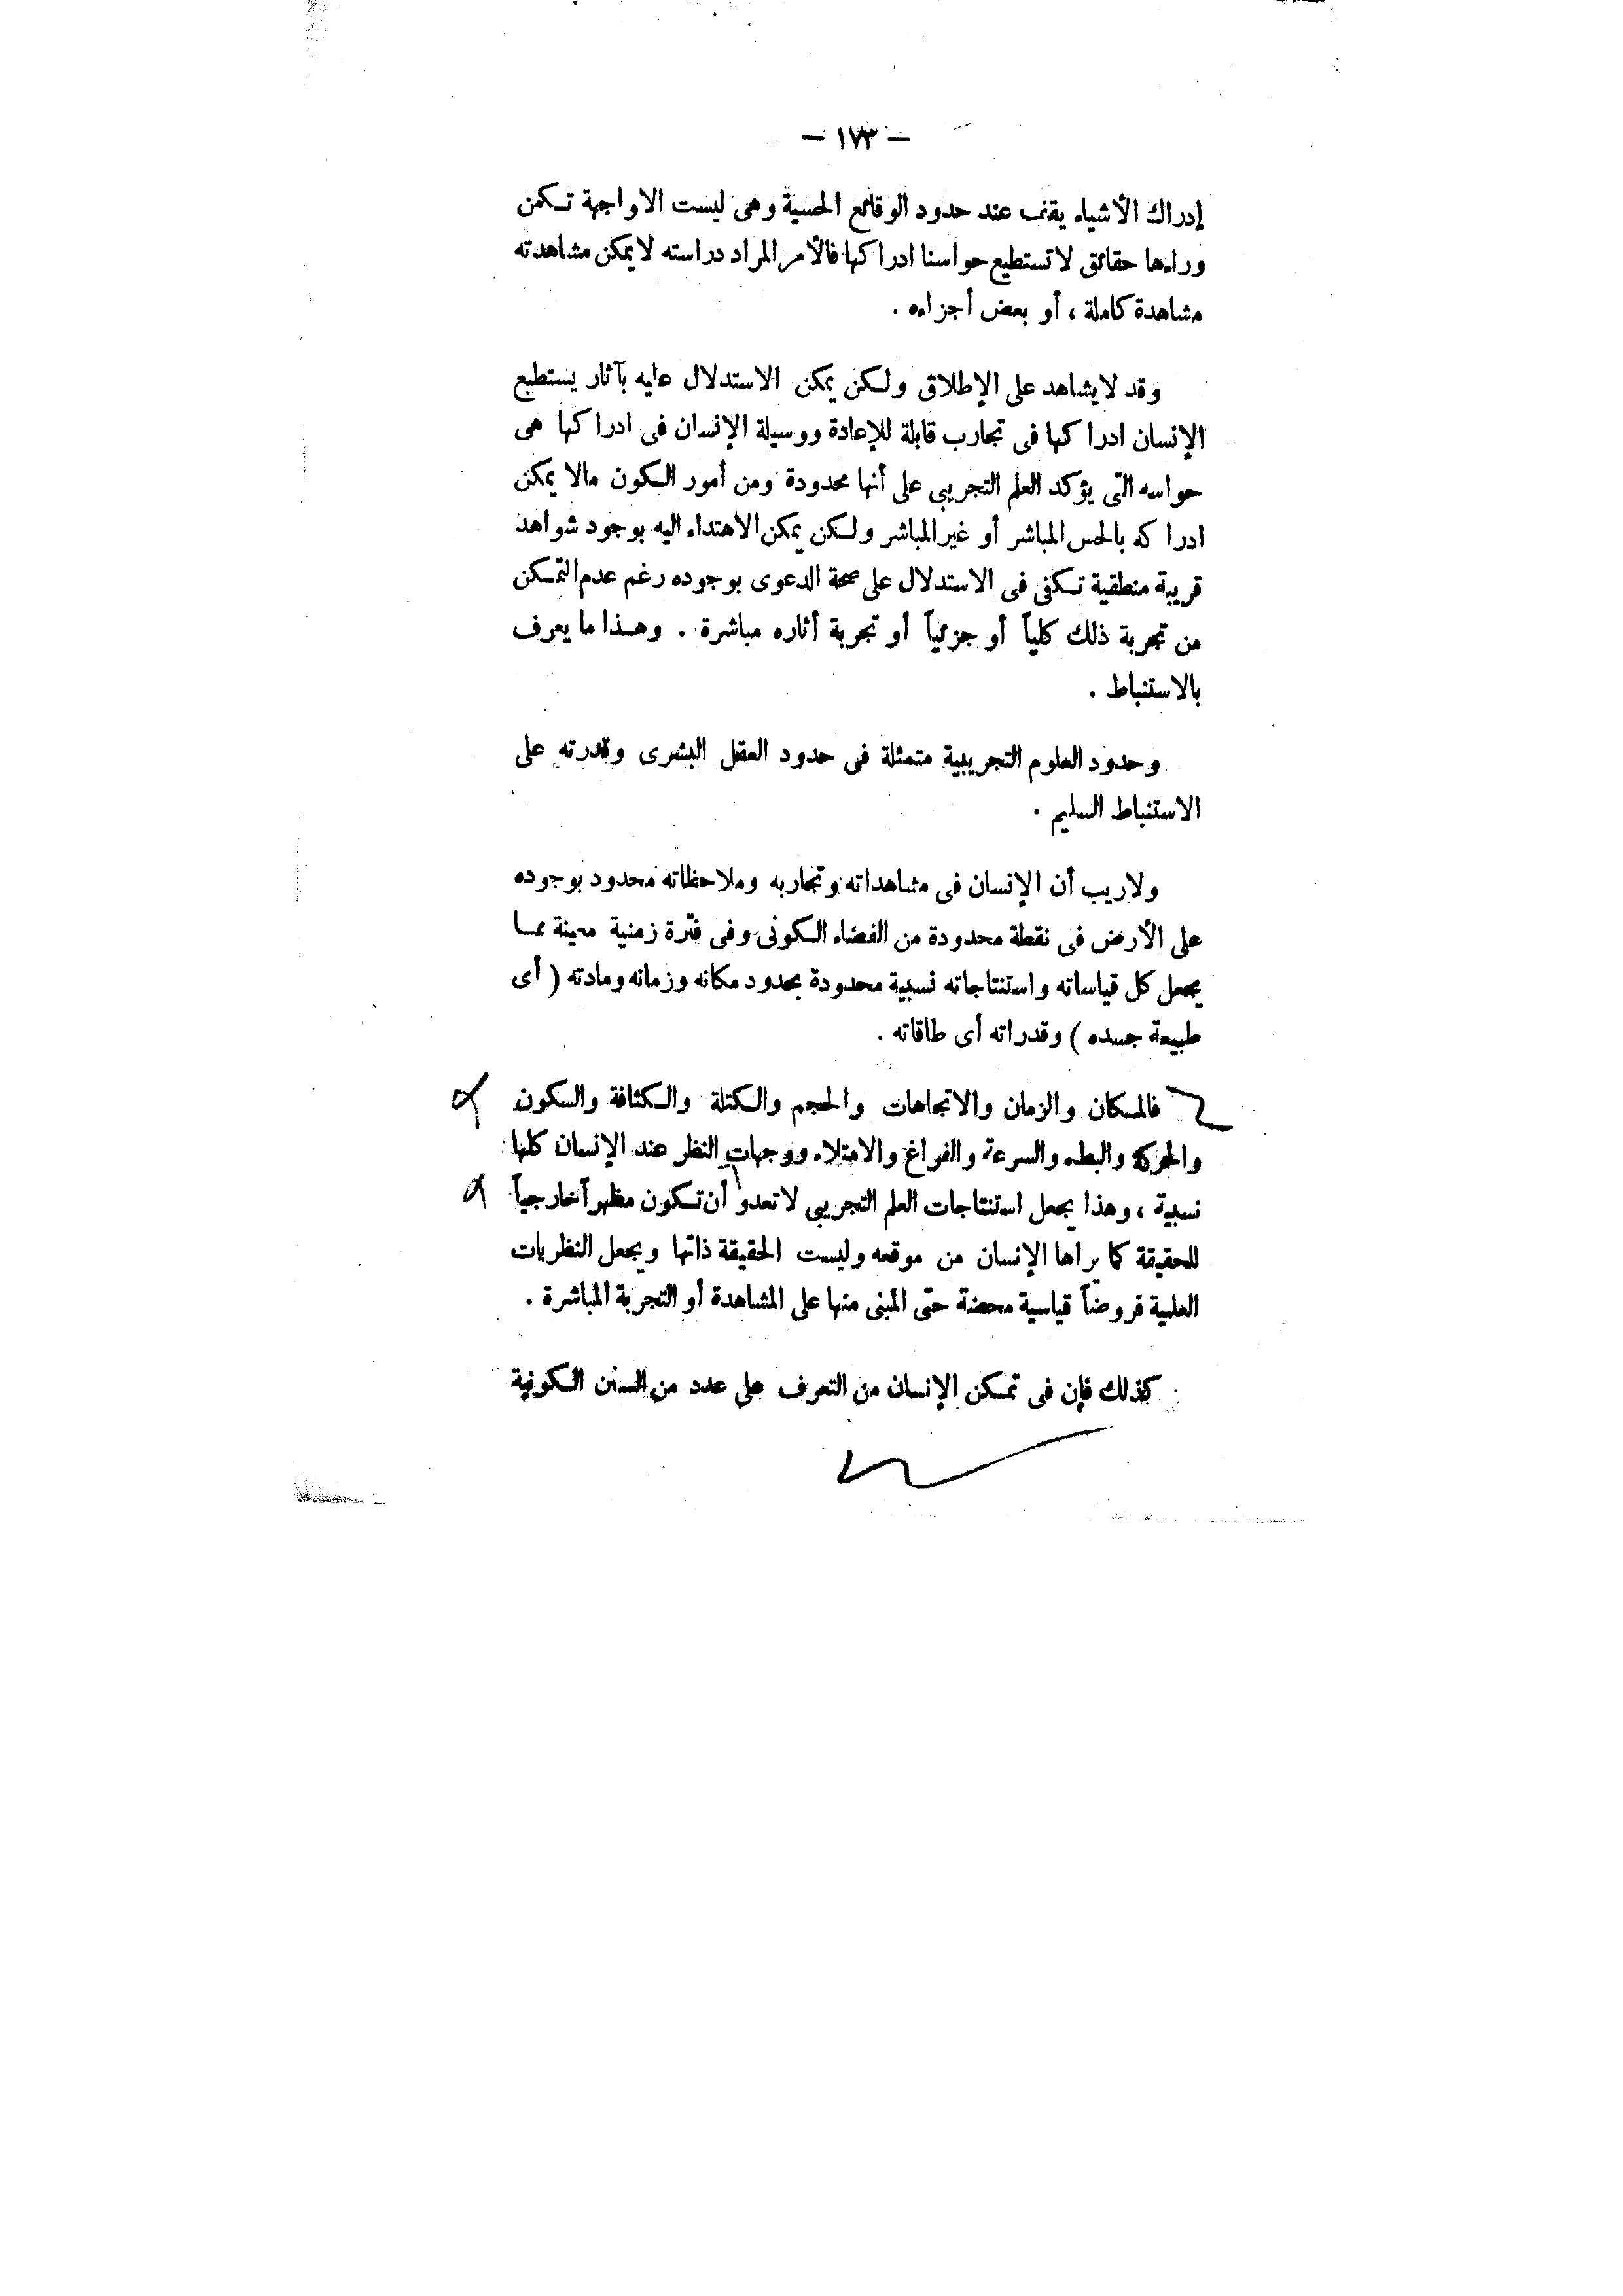 — ١٧٣ —
إدراك الأشياء يقف عند حدود الوقائع الحسية وهى ليست الا واجهة تكمن
وراءها حقائق لا تستطيع حواسنا ادراكها فالأمر المراد دراسته لا يمكن مشاهدته
مشاهدة كاملة ، أو بعض أجزاءه .
وقد لا يشاهد على الإطلاق ولكن يمكن الاستدلال عليه بآثار يستطيع
الإنسان ادراكها فى تجارب قابلة للإعادة ووسيلة الإنسان فى ادراكها هى
حواسه التى يؤكد العلم التجريبى على أنها محدودة ومن أمور الكون مالا يمكن
ادراكه بالحس المباشر أو غير المباشر ولكن يمكن الاهتداء اليه بوجود شواهد
قريبة منطقية تكفى فى الاستدلال على صحة الدعوى بوجوده رغم عدم التمكن
من تجربة ذلك كلياً أو جزئياً أو تجربة أثاره مباشرة . وهذا ما يعرف
بالاستنباط .
وحدود العلوم التجريبية متمثلة فى حدود العقل البشرى وقدرته على
الاستنباط السليم .
ولا ريب أن الإنسان فى مشاهداته وتجاربه وملاحظاته محدود بوجوده
على الأرض فى نقطة محدودة من الفضاء الكونى وفى فترة زمنية معينة مما
يجعل كل قياساته واستنتاجاته نسبية محدودة بحدود مكانه وزمانه ومادته ( أى
طبيعة جسده ) وقدراته أى طاقاته .
فالمكان والزمان والاتجاهات والحجم والكتلة والكثافة والسكون
والحركة والبطء والسرعة والفراغ والامتلاء ووجهات النظر عند الإنسان كلها
نسبية ، وهذا يجعل استنتاجات العلم التجريبى لا تعدو أن تكون مظهراً خارجياً
للحقيقة كما يراها الإنسان من موقعه وليست الحقيقة ذاتها ويجعل النظريات
العلمية فروضاً قياسية محضة حتى المبنى منها على المشاهدة أو التجربة المباشرة .
كذلك فإن فى تمكن الإنسان من التعرف على عدد من السنن الكونية